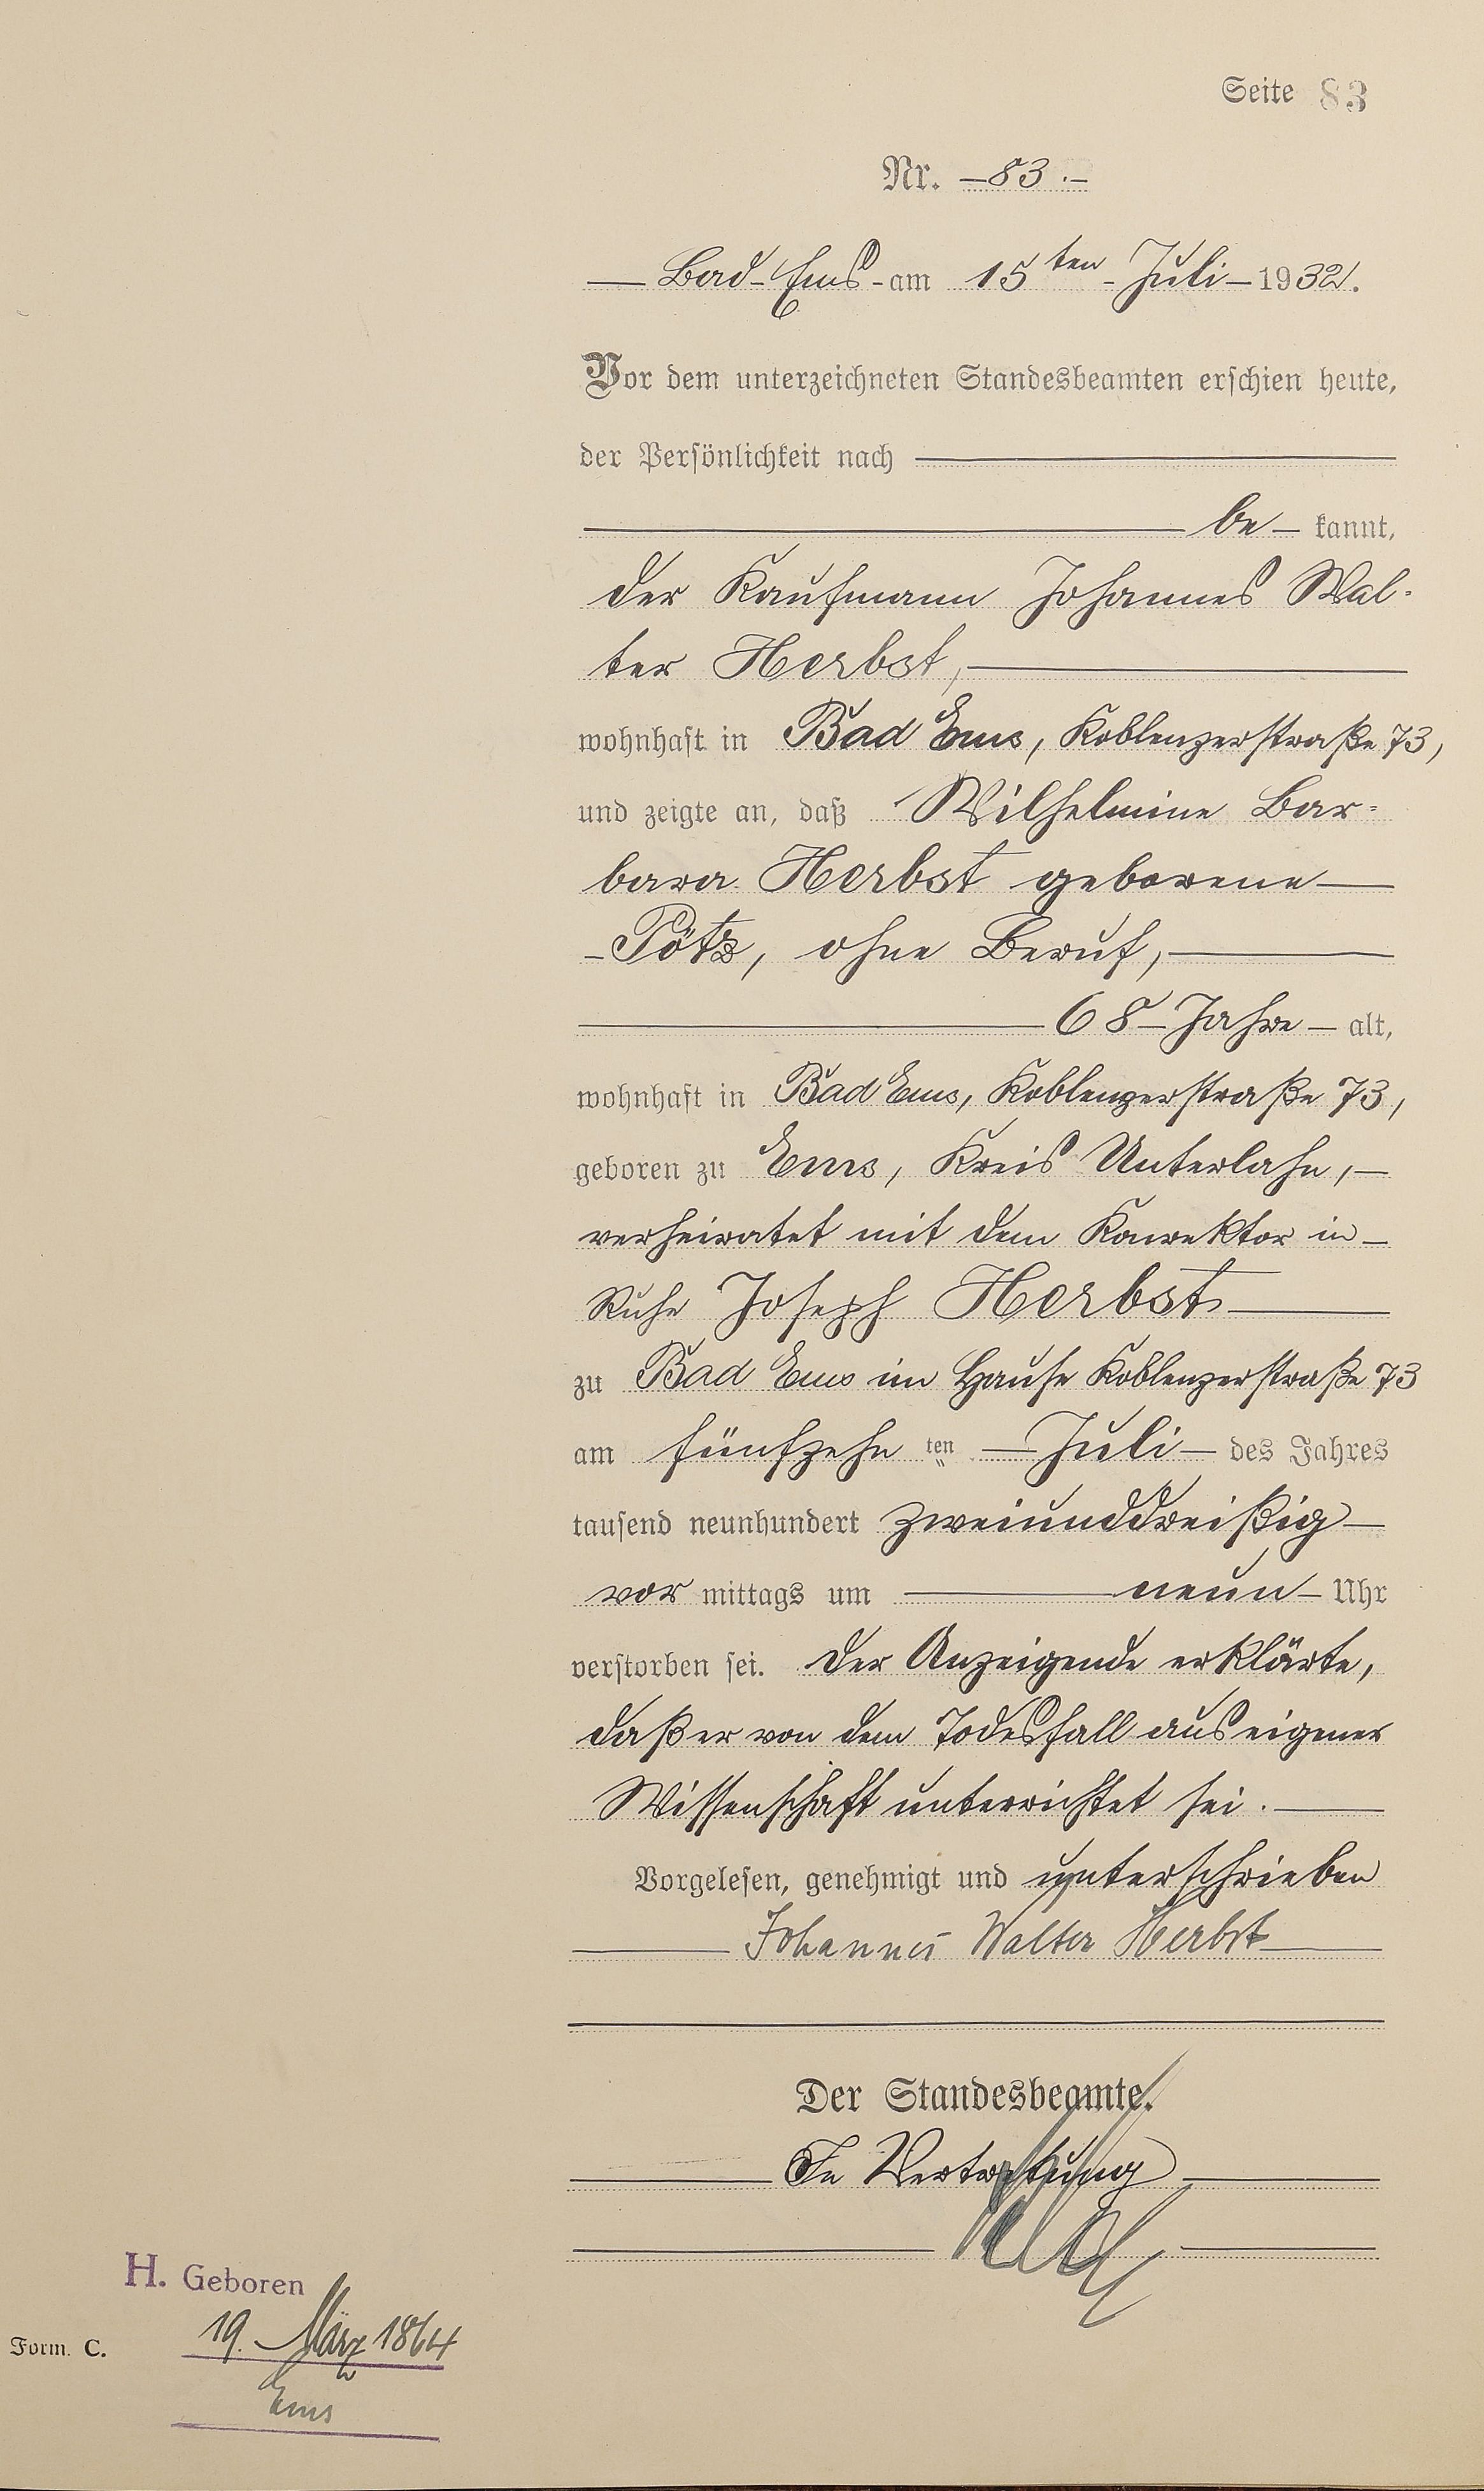 Seite 83
Nr. 83.
Bad-Ems - am 15ten Juli 1932.
Vor dem unterzeichneten Standesbeamten erschien heute,
der Persönlichkeit nach
be- kannt,
der Kaufmann Johannes Wal-
ter Herbst,
wohnhaft in Bad Ems, Koblenzerstraße 73,
und zeigte an, daß Wilhelmine Bar=
bara Herbst geborene
Pötz, ohne Beruf,
68 Jahre alt,
wohnhaft in Bad Ems, Koblenzerstraße 73,
geboren zu Ems, Kreis Unterlahn,
verheiratet mit dem Konrektor in
Ruhe Joseph Herbst
zu Bad Ems im Hause Koblenzerstraße 73
am fünfzehn ten Juli des Jahres
tausend neunhundert zweiunddreißig
vor mittags um neun Uhr
verstorben sei. Der Anzeigende erklärte,
daß er von dem Todesfall aus eigener
Wissenschaft unterrichtet sei.
Vorgelesen, genehmigt und unterschrieben
Johannes Walter Herbst
Der Standesbeamte.
In Vertretung
H. Geboren
19. März 1864
Form. C.
Ems